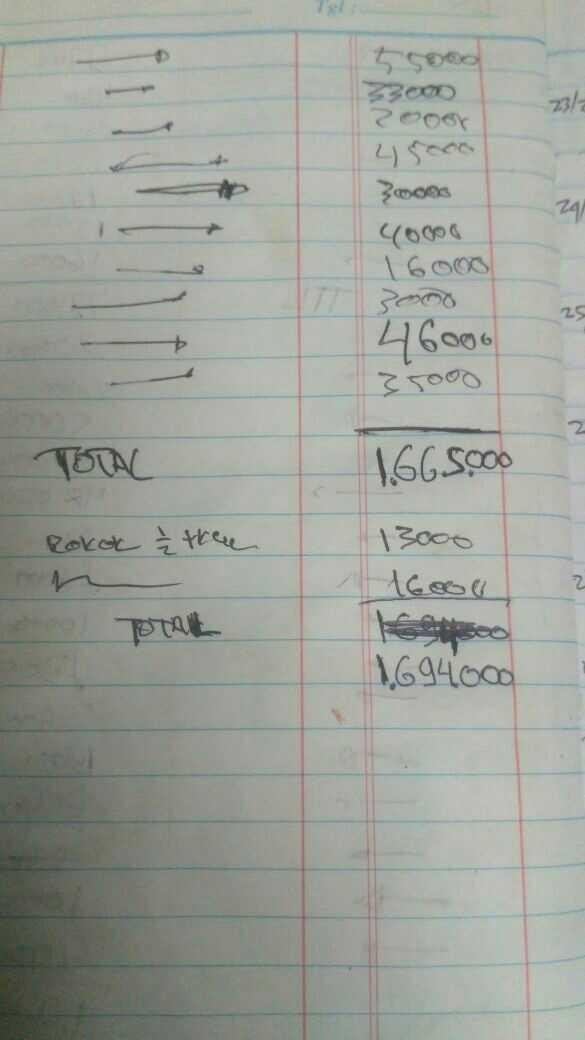 Tgl:
55000
33000
20000
45000
30000
40000
16000
3000
46000
35000
TOTAL 1.665.000
ROKOK 1/2 13000
16000
TOTAL
1.694.000
23/2
24/
25
2
2